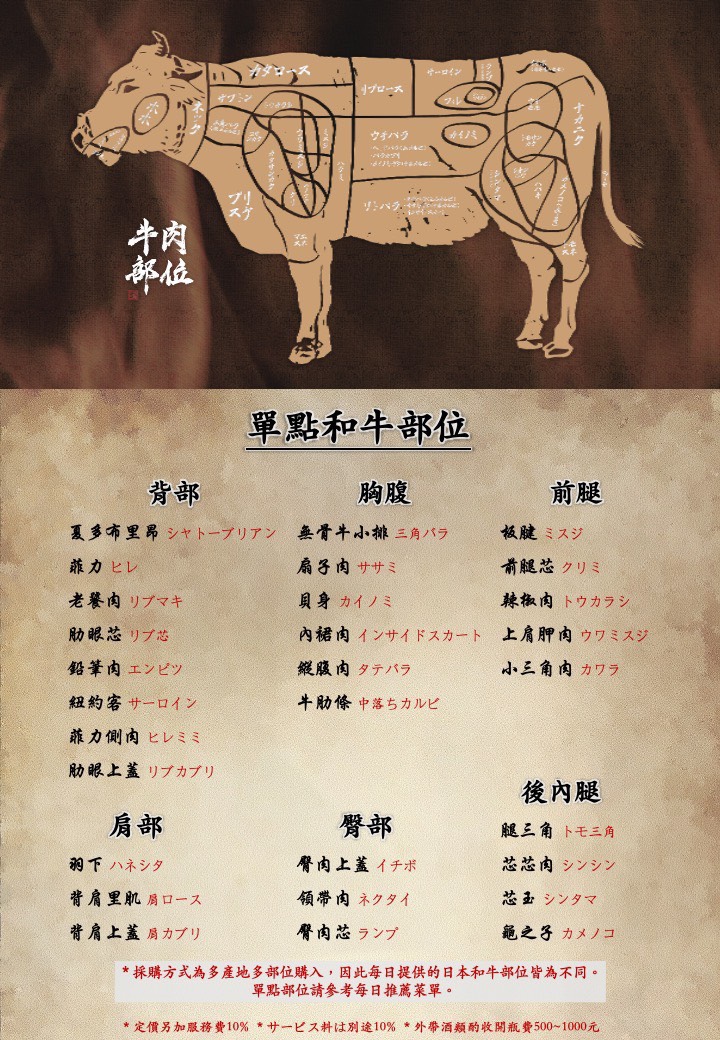 カタロース
リブロース
サーロイン
ネック
ウチバラ
カイノミ
ナカニク
ブリスケ
牛肉
部位
單點和牛部位
背部
夏多布里昂 シャトーブリアン
菲力 ヒレ
老饕肉 リブマキ
肋眼芯 リブ芯
鉛筆肉 エンピツ
紐約客 サーロイン
菲力側肉 ヒレミミ
肋眼上蓋 リブカブリ
胸腹
無骨牛小排 三角バラ
扇子肉 ササミ
貝身 カイノミ
內裙肉 インサイドスカート
縱腹肉 タテバラ
牛肋條 中落ちカルビ
前腿
板腱 ミスジ
前腿芯 クリミ
辣椒肉 トウカラシ
上肩胛肉 ウワミスジ
小三角肉 カワラ
肩部
羽下 ハネシタ
背肩里肌 肩ロース
背肩上蓋 肩カブリ
臀部
臀肉上蓋 イチボ
領帶肉 ネクタイ
臀肉芯 ランプ
後內腿
腿三角 トモ三角
芯芯肉 シンシン
芯玉 シンタマ
龜之子 カメノコ
*採購方式為多產地多部位購入，因此每日提供的日本和牛部位皆為不同。
單點部位請參考每日推薦菜單。
*定價另加服務費10% *サービス料は別途10% *外帶酒類酌收開瓶費500~1000元